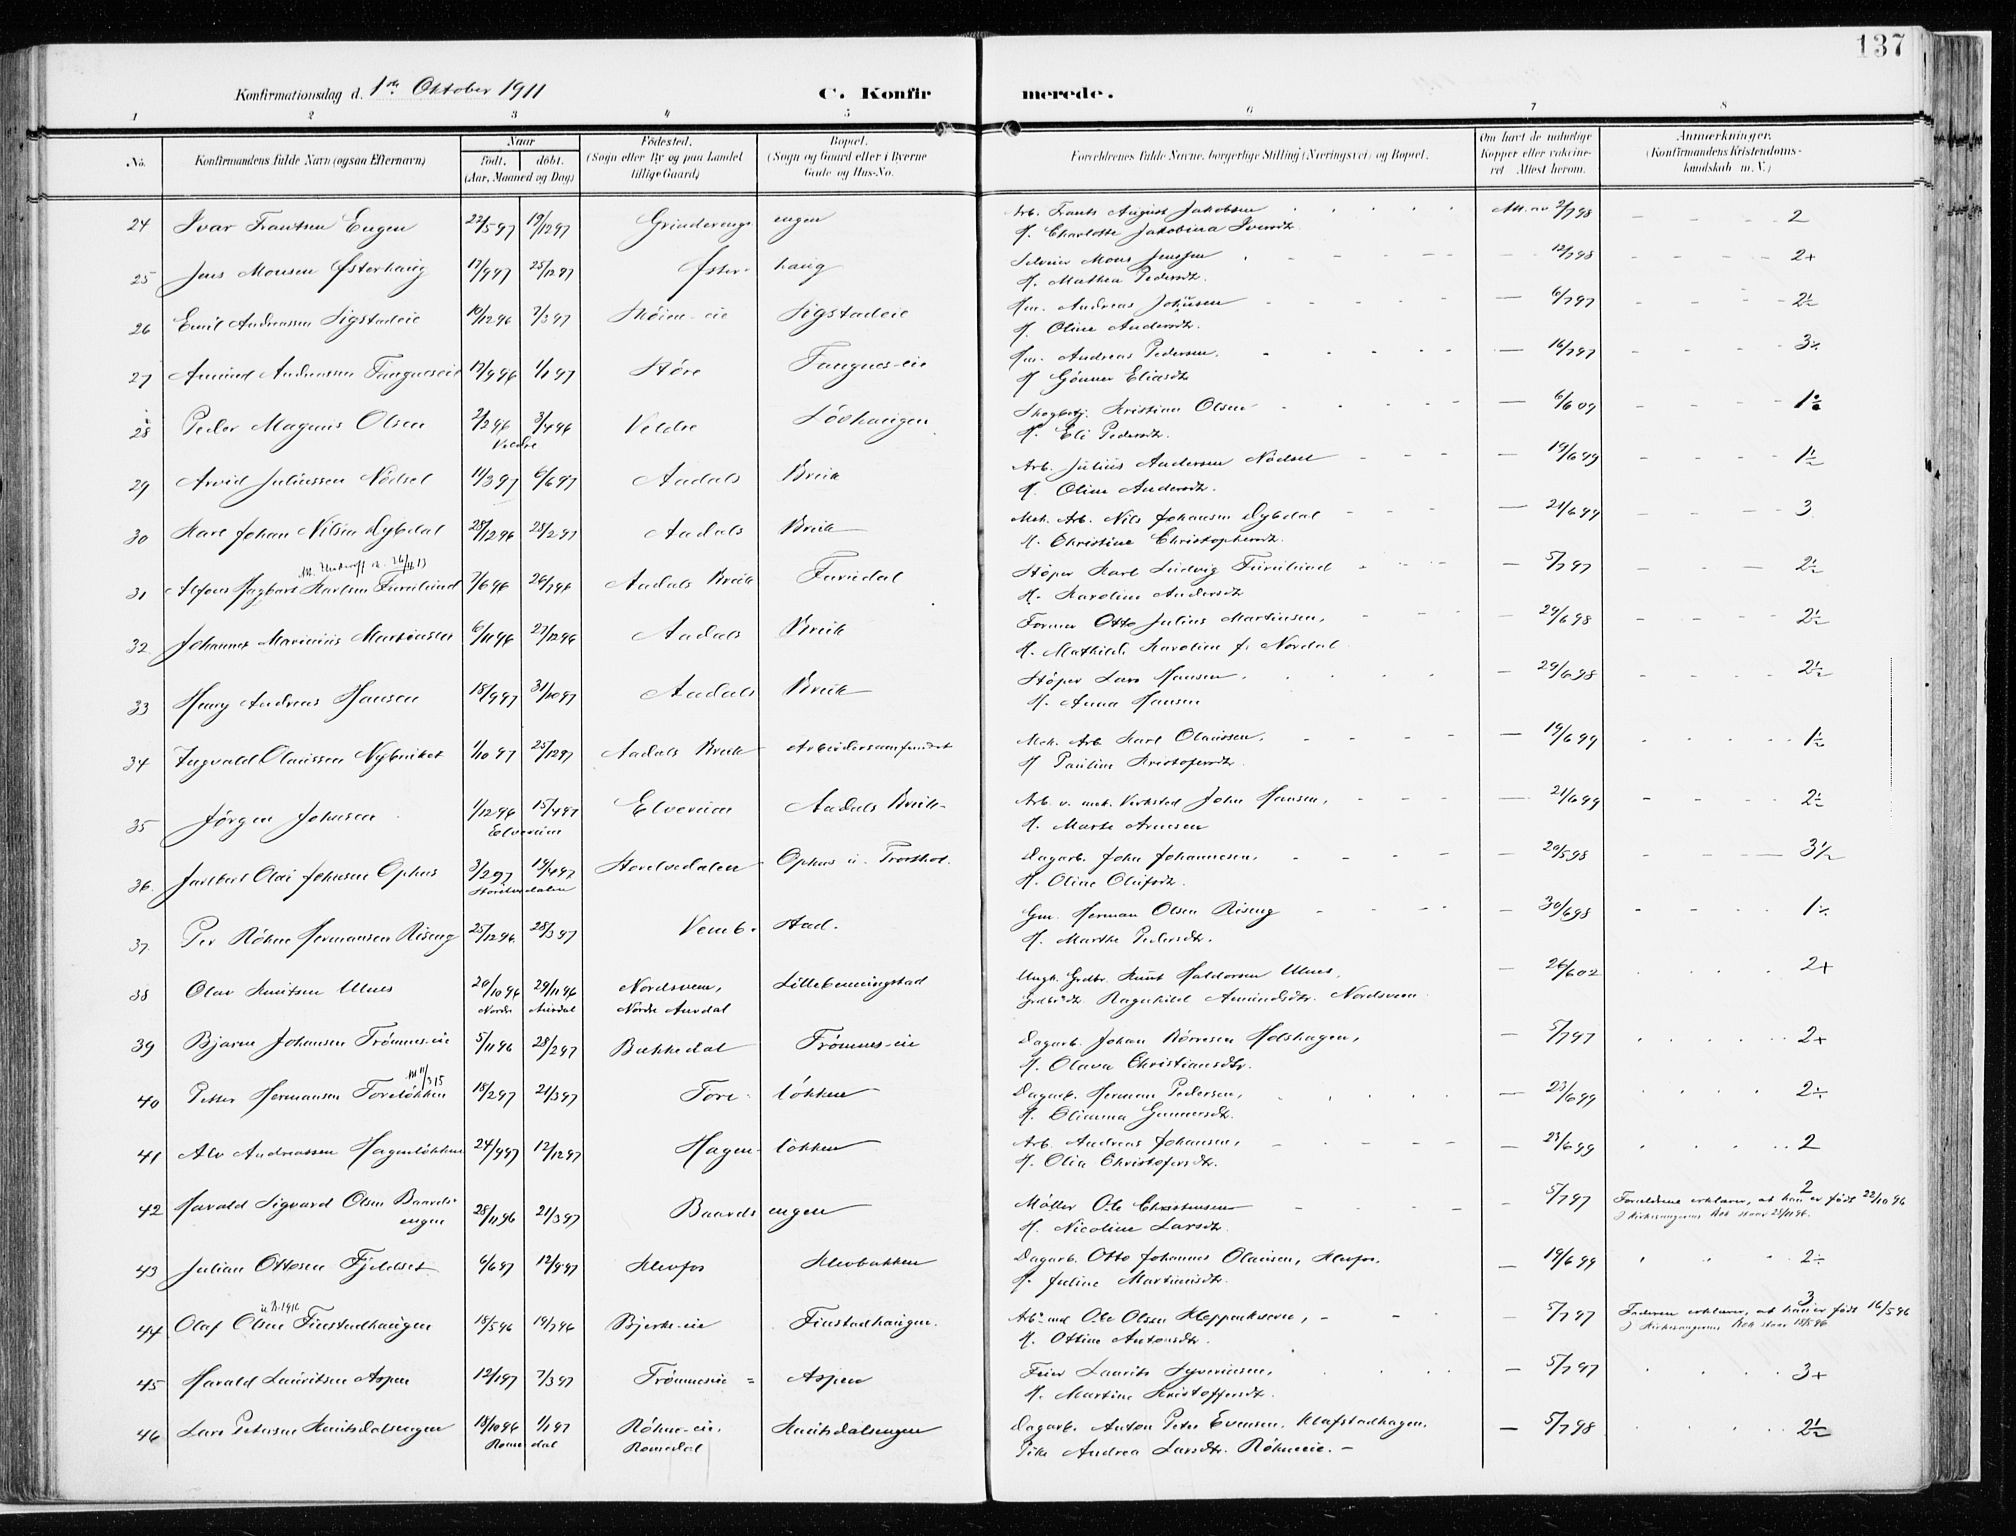 137
Konfirmationsdag d. 1ste Oktober 1911 C. Konfirmerede.
1 2 3 4 5 6 7 8
No. Konfirmandens fulde Navn (ogsaa Efternavn) Naar født. døbt. (Aar, Maaned og Dag) Fødested. (Sogn eller By og paa Landet tillige Gaard) Bopæl. (Sogn og Gaard eller i Byerne Gade og Hus-No. Forældrenes fulde Navne, borgerlige Stilling (Næringsvei) og Bopæl. Om havt de naturlige Kopper eller vaccineret. Attest herom. Anmærkninger. (Konfirmandens Kristendomskundskab m. V.)
24 Ivar Frantsen Engen 22/5 97 19/12 97 Grinderengen Arb. Frants August Jakobsen Att. av 2/7 98 2
H. Charlotte Jakobina Iversdt.
25 Jens Monsen Østerhaug 17/9 97 25/12 97 Østerhaug Selveier Mons Jensen — 12/7 98 2+
H. Mathea Pedersdt.
26 Emil Andreassen Sigstadeie 10/12 96 7/3 97 Skøien-eie Sigstadeie Hm. Andreas Johnsen — 6/7 97 2½
H. Oline Andersdt.
27 Amund Andreassen Tangneseie 17/9 96 1/1 97 Støre Tangnes-eie Hm. Andreas Pedersen. — 16/7 97 3÷
H Gønner Eliasdt
28 Peder Magnus Olsen 2/2 96 3/4 96 Veldre Løvhaugen Skogbetj. Kristian Olsen — 6/6 09 1½
Veldre H. Eli Pedersdt.
29 Arvid Juliussen Nødset 11/3 97 6/6 97 Aadals Bruk Arb. Julius Andersen Nødset — 19/6 99 1½
H. Oline Andersdt.
30 Karl Johan Nilsen Dybdal 28/12 96 28/2 97 Aadals Bruk Mek. Arb. Nils Johansen Dybdal — 21/6 99 3
H. Christine Christophersdt.
31 Alfons Hagbart Karlsen Furulund 7/6 96 26/7 96 Aadals Bruk Furudal Støper Karl Ludvig Furulund — 5/7 97 2½
H. Karoline Andersdt
32 Johannes Marinius Martinsen 6/11 96 27/12 96 Aadals Bruk Former Otto Julius Martinsen, — 29/6 98 2½
H. Mathilde Karoline f. Nordal
33 Henry Andreas Hansen 18/9 97 31/10 97 Aadals Bruk Støper Lars Hansen, — 29/6 98 2½
H. Anna Hansen
34 Ingvald Olaussen Nybruket 1/10 97 25/12 97 Aadals Bruk Arbeidersamfundet Mek. Arb Karl Olaussen, — 19/6 99 1½
H Pauline Kristofersdt.
35 Jørgen Johnsen 1/12 96 15/4 97 Elverum Aadals Bruk Arb. v. mek. Verksted John Hansen, — 21/6 99 2½
Elverum H. Marte Arnesen
36. Jarlbert Olai Johnsen Ophus 3/2 97 19/4 97 Storelvedalen Ophus Dagarb. John Johannesen, — 20/5 98 3½
Storelvedalen H. Oline Olufsdt.
37. Per Røhne Hermansen Riseng 25/12 96 28/3 97 Vembstad. Gm. Herman Olsen Riseng — 30/6 98 1÷
H. Marthe Pedersdt.
38 Olav Knutsen Ulnes 20/10 96 29/11 96 Nordsveen, Lillebenningstad Ungk. Grdbr. Knut Haldorsen Ulnes, — 26/6 02 2+
Nordre Aurdal Nordre Aurdal Grdbrdt. Ragnhild Amundsdtr. Nordsveen
39 Bjarne Johansen Frømnes-eie 5/11 96 28/2 97 Bækkedal Frømnes-eie Dagarb. Johan Børresen Holshagen, — 5/7 97 2+
H. Olava Christiansdtr.
40 Petter Hermansen Toreløkken 18/2 97 21/3 97 Toreløkken Dagarb. Herman Pedersen, — 23/6 99 2÷
H. Olianna Gunnersdt.
41 Alv Andreassen Hagenløkken 24/9 97 12/12 97 Hagenløkken Arb. Andreas Johansen, — 23/6 99 2
H. Olia Christofersdtr.
42 Harald Sigvard Olsen Baardsengen 28/11 96 21/3 97 Baardsengen Møller Ole Christensen — 5/7 97 2 Forældrene erklærer, at han er født 22/10 96
H. Nicoline Larsdt.
43 Julian Ottosen Fjeldset 6/6 97 12/9 97 Klevfos Klevbakken Dagarb. Otto Johannes Olausen, Klevfos, — 19/6 99 2÷
H. Juline Martinusdtr.
44 Olaf Olsen Finstadhaugen 18/5 96 19/7 96 Bjerke-eie Finstadhaugen. Arbmd Ole Olsen Kloppenkveern, — 5/7 97 3 Faderen erklærer, at han er født 16/5 96
H. Ottine Antonsdtr.
45 Harald Lauritsen Aspen 12/1 97 7/3 97 Frømneseie Aspen Feier Laurits Syverinsen, — 5/7 97 3+
H. Martine Kristoffersdt.
46 Lars Petersen Knutsdalsengen 18/10 96 1/1 97 Røhne-eie, Knutsdalsengen Dagarb. Anton Peter Evensen, Klafstadhagen, — 5/7 98 2½
Romedal Romedal Pike Andrea Larsdtr. Røhneeie. —